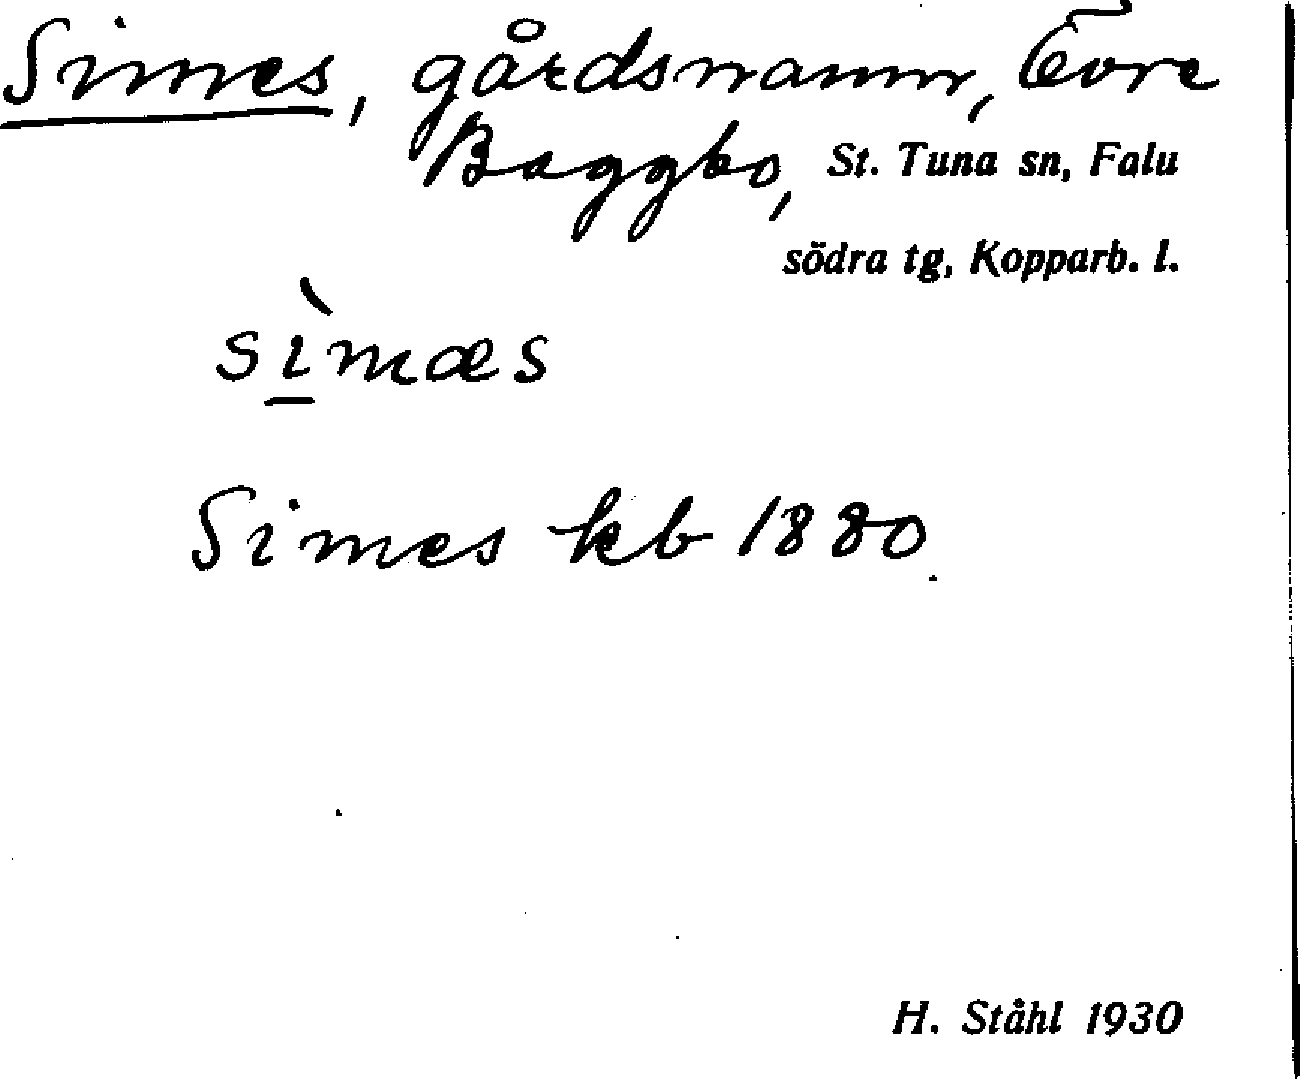 Simes, gårdsnamn, Övre
Baggbo, St. Tuna sn, Falu
södra tg, Kopparb. l.
sı̱̀mæs
Simes kb 1880.
H. Ståhl 1930